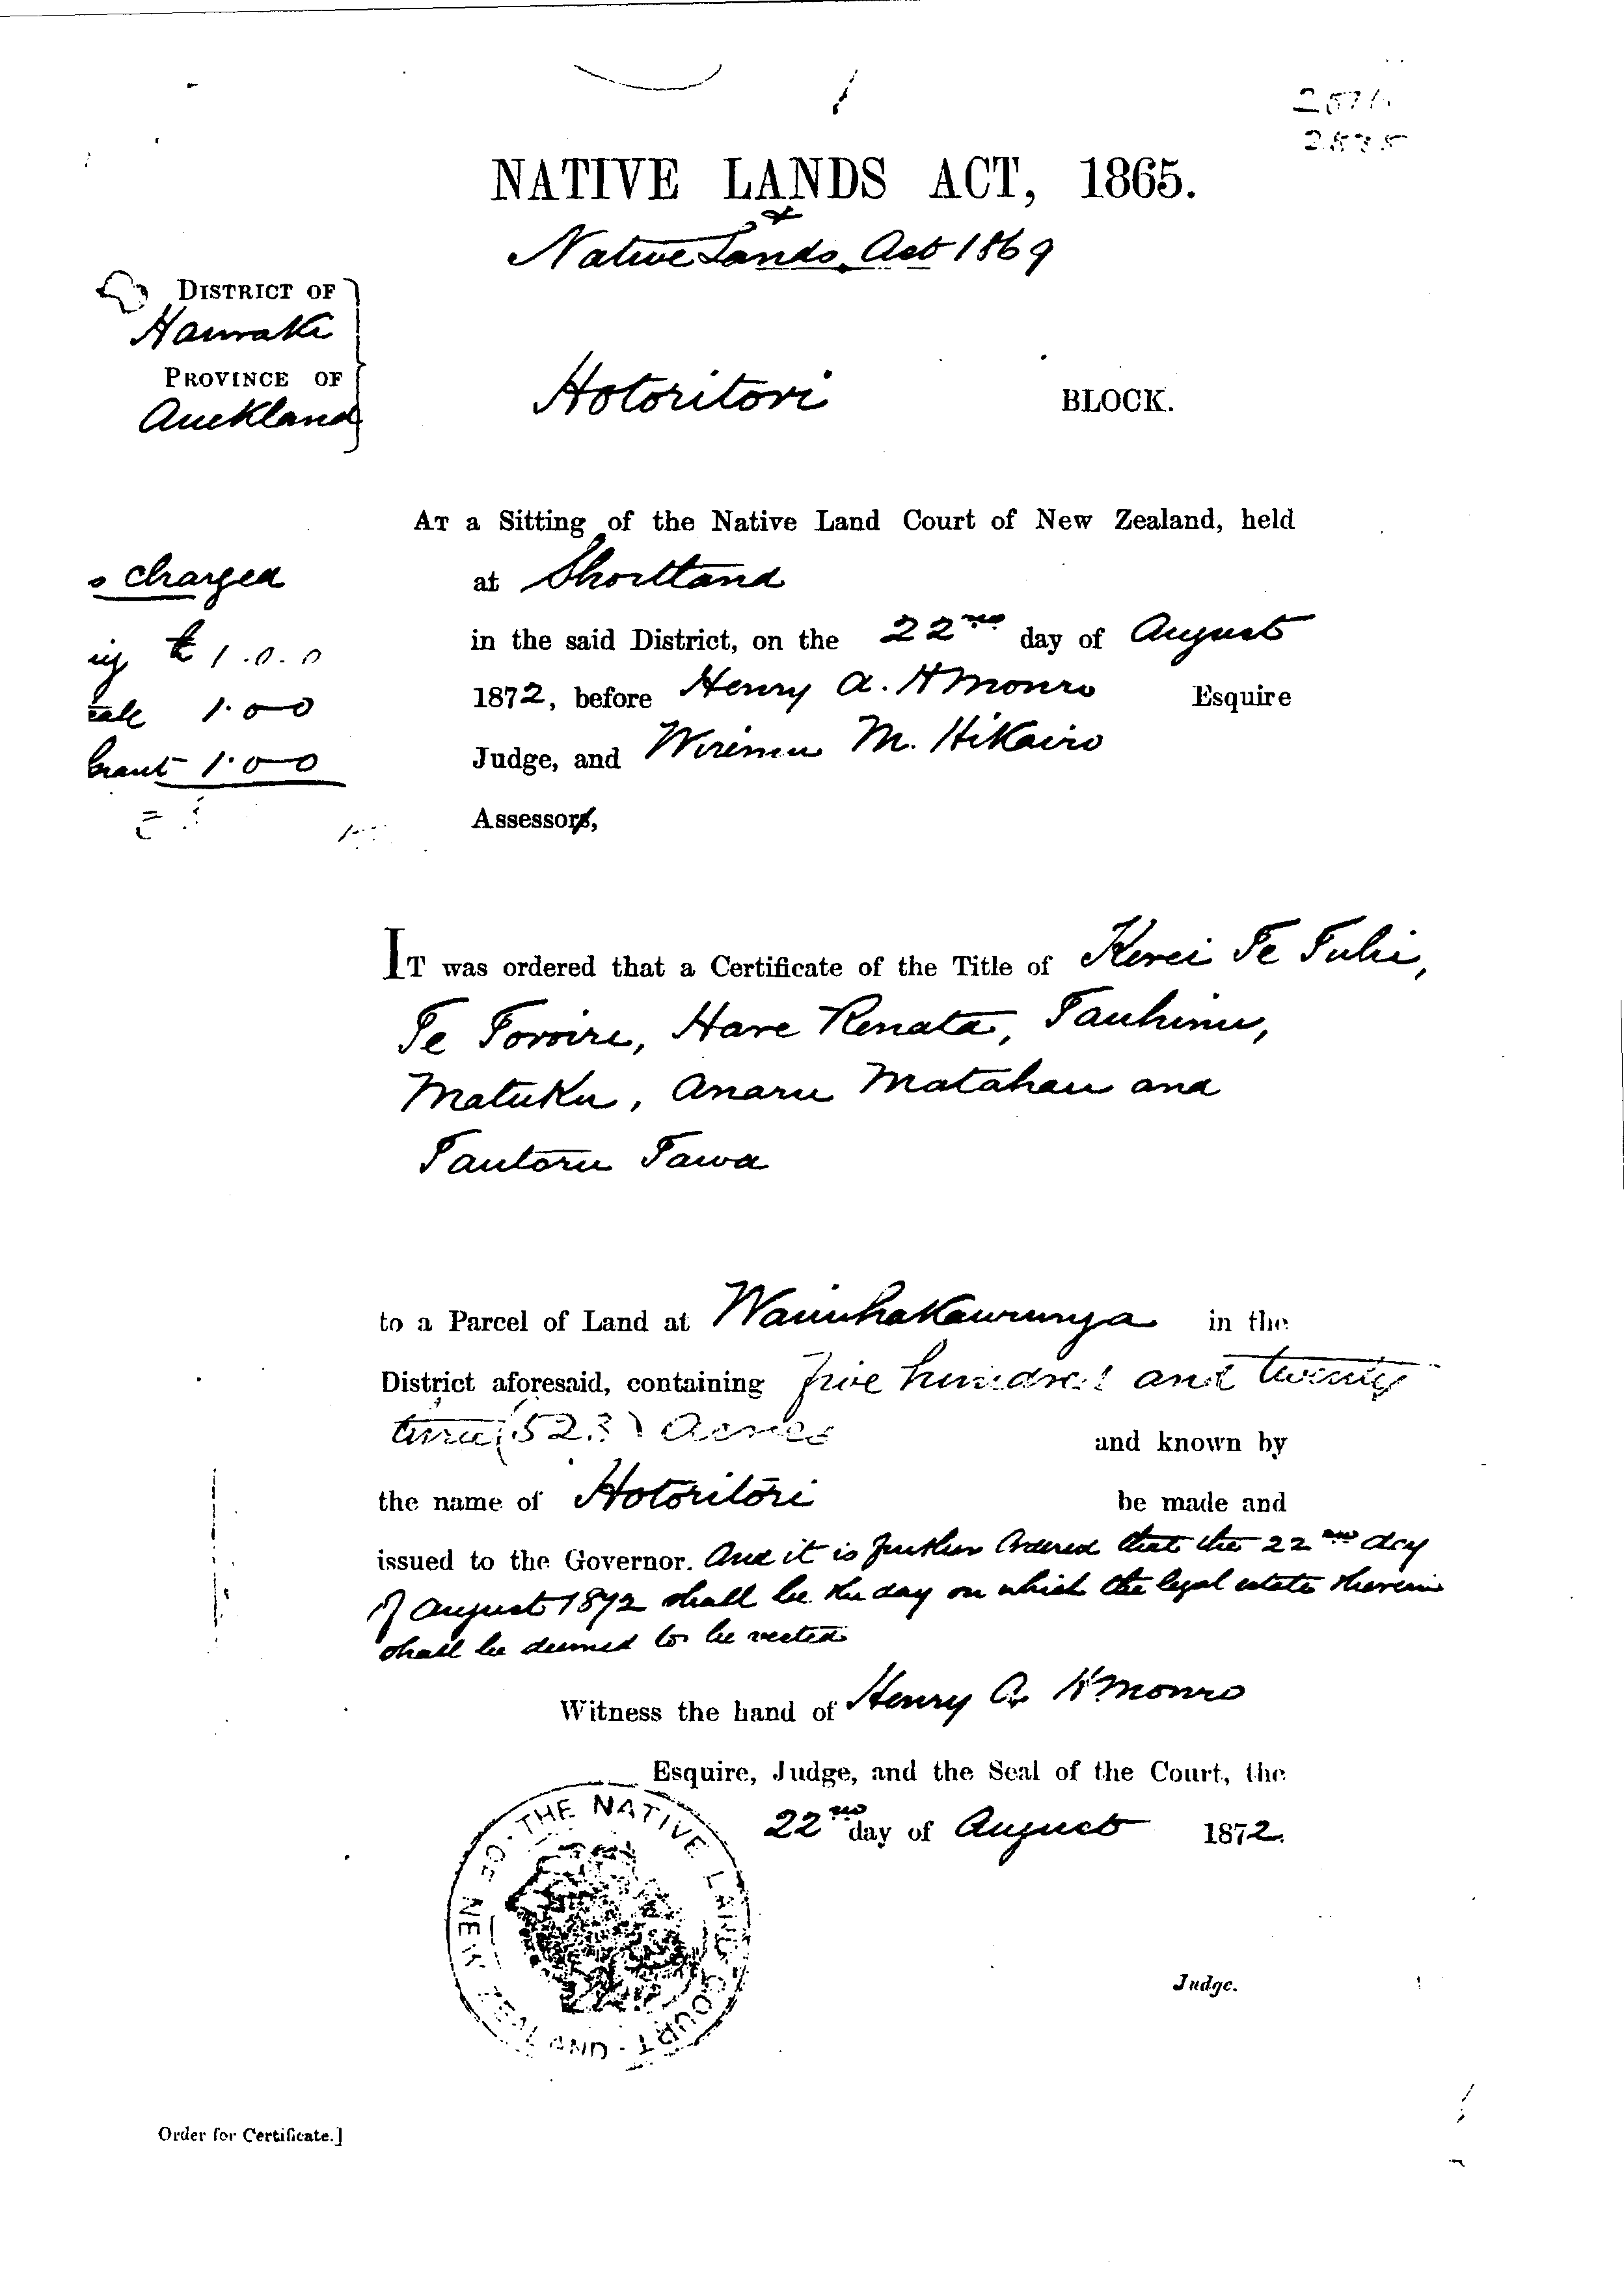 NATIVE LANDS ACT, 1865.
& Native Lands Act 1869
DISTRICT OF
Hauraki
PROVINCE OF
Auckland
Hotoritori BLOCK.
AT a Sitting of the Native Land Court of New Zealand, held
charged
at Shortland
in the said District, on the 22nd day of August
£1.0.0
1872, before Henry A. H Monro Esquire
1.0.0
Judge, and Wiremu M. Hikairo
Grant 1.0.0
Assessors,
IT was ordered that a Certificate of the Title of Kerei Te Tuhi,
Te Tororire, Hare Renata, Tauhinu,
Matuku, Anaru Matahau and
Tautoru Tawa
to a Parcel of Land at Waiwhakaurunga in the
District aforesaid, containing five hundred and twenty
three (523) acres and known by
the name of Hotoritori be made and
issued to the Governor. And it is further Ordered that the 22nd day
of August 1872 shall be the day on which the legal estate therein
shall be deemed to be vested
Witness the hand of Henry A H Monro
Esquire, Judge, and the Seal of the Court, the
22nd day of August 1872.
THE NATIVE LAND COURT · OF NEW ZEALAND ·
Judge.
Order for Certificate.]